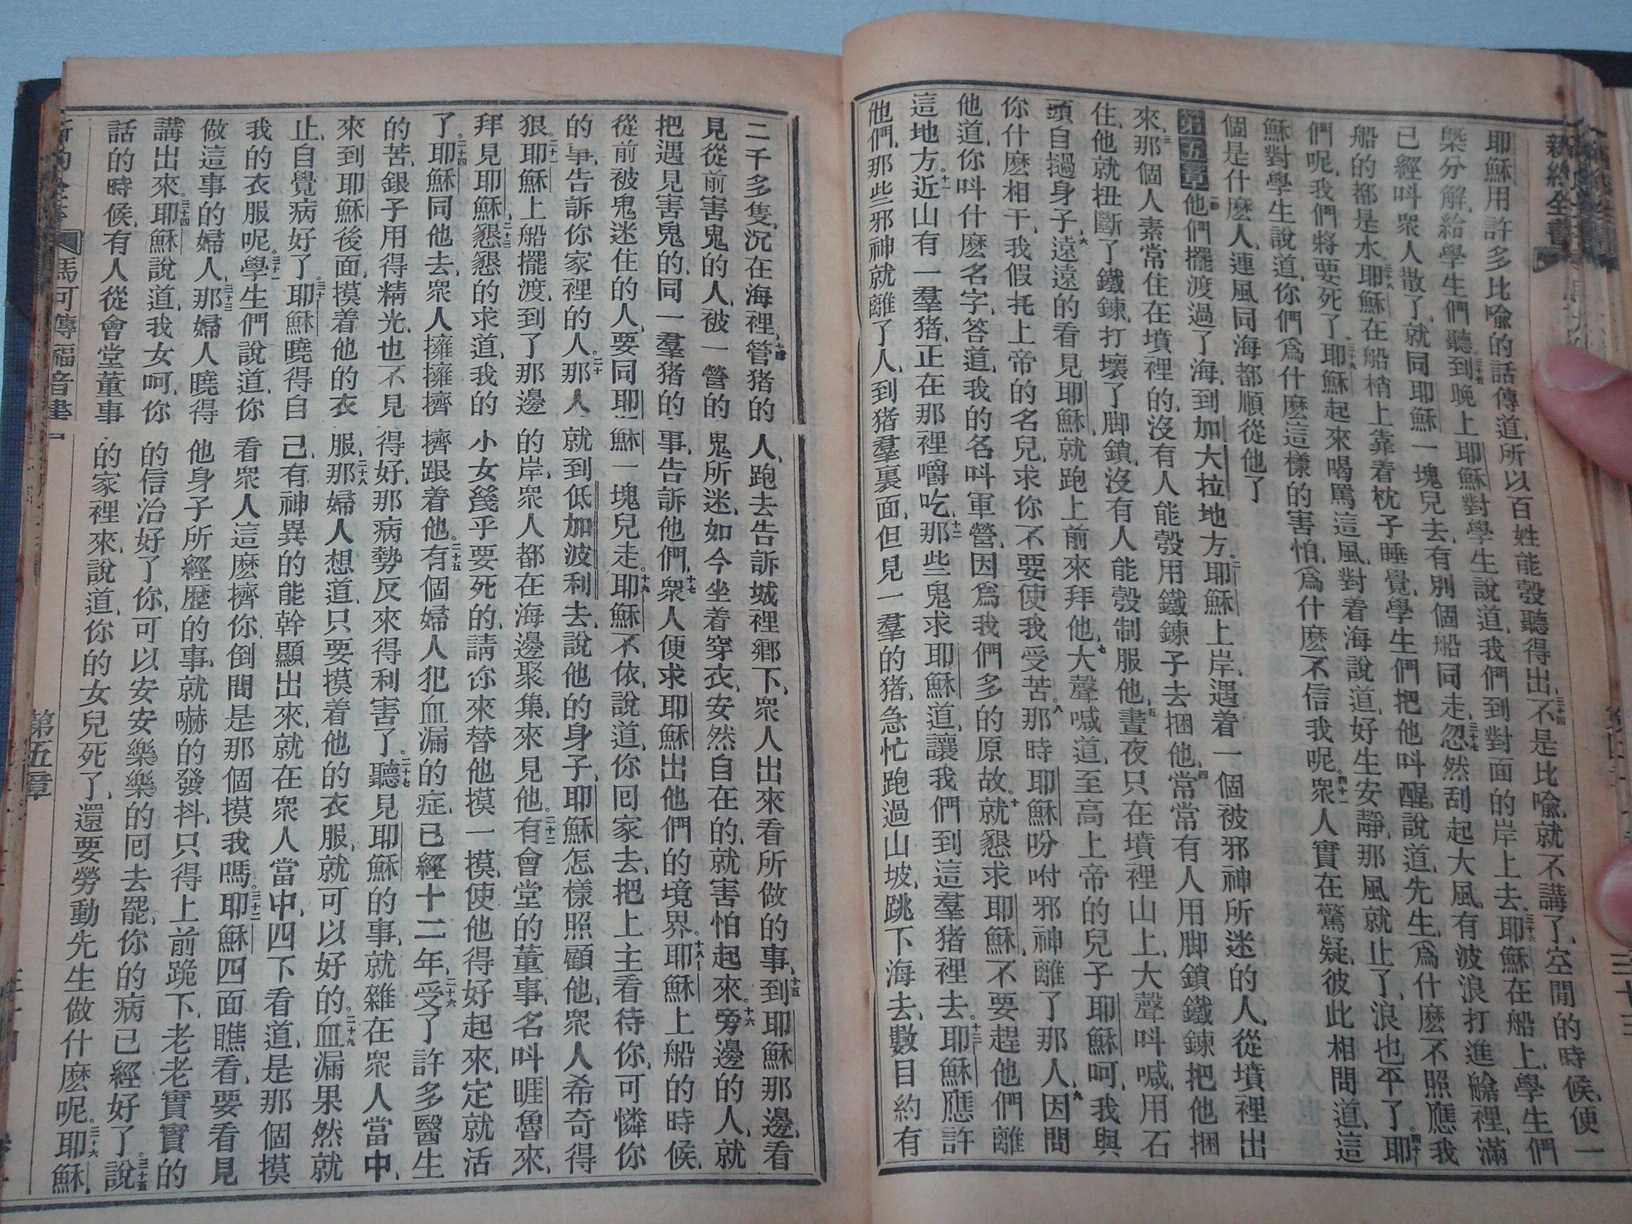 新約全書
耶穌用許多比喩的話傳道、所以百姓能彀聽得出、三十四不是比喩、就不講了、空閒的時候、便一
槩分解、給學生們聽、三十五到晚上、耶穌對學生說道、我們到對面的岸上去、三十六耶穌在船上、學生們
已經呌衆人散了、就同耶穌一塊兒去、有別個船同走、三十七忽然刮起大風、有波浪打進艙裡、滿
船的都是水、三十八耶穌在船梢上靠着枕子睡覺、學生們把他呌醒、說道、先生、爲什麽不照應我
們呢、我們將要死了、三十九耶穌起來喝罵這風、對着海說道、好生安靜、那風就止了、浪也平了、四十耶
穌對學生說道、你們爲什麽這樣的害怕、爲什麽不信我呢、四十一衆人實在驚疑、彼此相問道、這
個是什麽人、連風同海都順從他了
第五章一他們擺渡過了海、到加大拉地方、二耶穌上岸、遇着一個被邪神所迷的人、從墳裡出
來、三那個人素常住在墳裡的、沒有人能彀用鐵鍊子去捆他、四常常有人用脚鎖鐵鍊把他捆
住、他就扭斷了鐵鍊、打壞了脚鎖、沒有人能彀制服他、五晝夜只在墳裡山上、大聲呌喊、用石
頭自撾身子、六遠遠的看見耶穌、就跑上前來拜他、七大聲喊道、至高上帝的兒子耶穌呵、我與
你什麽相干、我假托上帝的名兒、求你不要使我受苦、八那時耶穌吩咐邪神離了那人、九因問
他道、你呌什麽名字、答道、我的名呌軍營、因爲我們多的原故、十就懇求耶穌、不要趕他們離
這地方、十一近山有一羣猪、正在那裡嚼吃、十二那些鬼求耶穌道、讓我們到這羣猪裡去、十三耶穌應許
他們、那些邪神就離了人、到猪羣裏面、但見一羣的猪、急忙跑過山坡、跳下海去、數目約有
二千多隻、沉在海裡、十四管猪的人、跑去告訴城裡鄉下、衆人出來看所做的事、十五到耶穌那邊、看
見從前害鬼的人、被一營的鬼所迷、如今坐着穿衣、安然自在的、就害怕起來、十六旁邊的人、就
把遇見害鬼的、同一羣猪的事、告訴他們、十七衆人便求耶穌出他們的境界、十八耶穌上船的時候、
從前被鬼迷住的人、要同耶穌一塊兒走、十九耶穌不依、說道、你回家去、把上主看待你、可憐你
的事、告訴你家裡的人、二十那人就到低加波利去、說他的身子、耶穌怎樣照顧他、衆人希奇得
狠、二十一耶穌上船擺渡到了那邊的岸、衆人都在海邊聚集、來見他、二十二有會堂的董事、名呌睚魯來、
拜見耶穌、二十三懇懇的求道、我的小女幾乎要死的、請你來替他摸一摸、使他得好起來、定就活
了、二十四耶穌同他去、衆人擁擁擠擠跟着他、二十五有個婦人犯血漏的症、已經十二年、二十六受了許多醫生
的苦、銀子用得精光、也不見得好、那病勢反來得利害了、二十七聽見耶穌的事、就雜在衆人當中、
來到耶穌後面、摸着他的衣服、二十八那婦人想道、只要摸着他的衣服、就可以好的、二十九血漏果然就
止、自覺病好了、三十耶穌曉得自己有神異的能幹顯出來、就在衆人當中、四下看道、是那個摸
我的衣服呢、三十一學生們說道、你看衆人這麽擠你、倒問是那個摸我嗎、三十二耶穌四面瞧看、要看見
做這事的婦人、三十三那婦人曉得他身子所經歷的事、就嚇的發抖、只得上前跪下、老老實實的
講出來、三十四耶穌說道、我女呵、你的信治好了你、可以安安樂樂的回去罷、你的病已經好了、三十五說
話的時候、有人從會堂董事的家裡來、說道、你的女兒死了、還要勞動先生做什麽呢、三十六耶穌
新約全書 馬可傳福音書 第五章